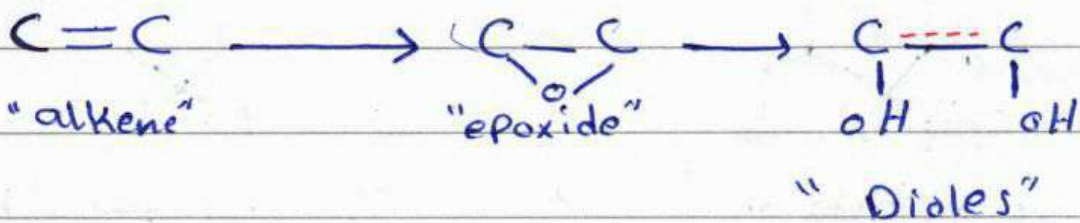 C = C → C – C → C – C
O
"alkene" "epoxide" OH OH
"Dioles"